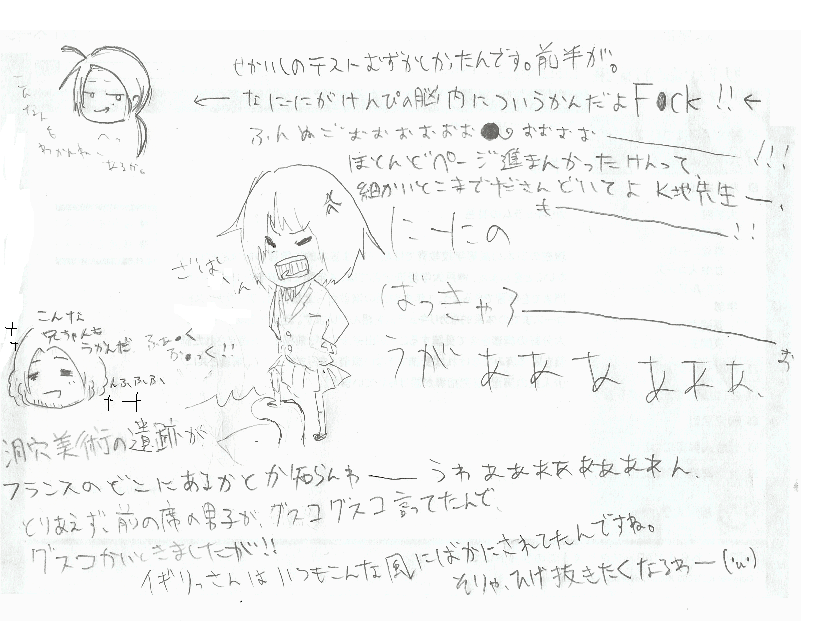 せかいしのテストむずかしかったんです。前半が。
← なにーにがけんぴの脳内についうかんだよ F●ck !! ←
ふんぬごおおおおおお●っおおおお ― !!!
ほとんどページ進まんかったけんって、
細かいとこまでださんどいてよ K地先生―、
も― !!
にーたの
ばっきゃろ―お
うがああああああ、
ざばーん
こんな
兄ちゃんも
うかんだ
んふふふふ
洞穴美術の遺跡が
フランスのどこにあるかとか知らんわ ― うわああああああああん、
とりあえず、前の席の男子が、グスコグスコ言ってたんで、
グスコかいときましたが!!
イギリっさんはいつもこんな風にばかにされてたんですね。
そりゃ、ひげ抜きたくなるわー('ω')